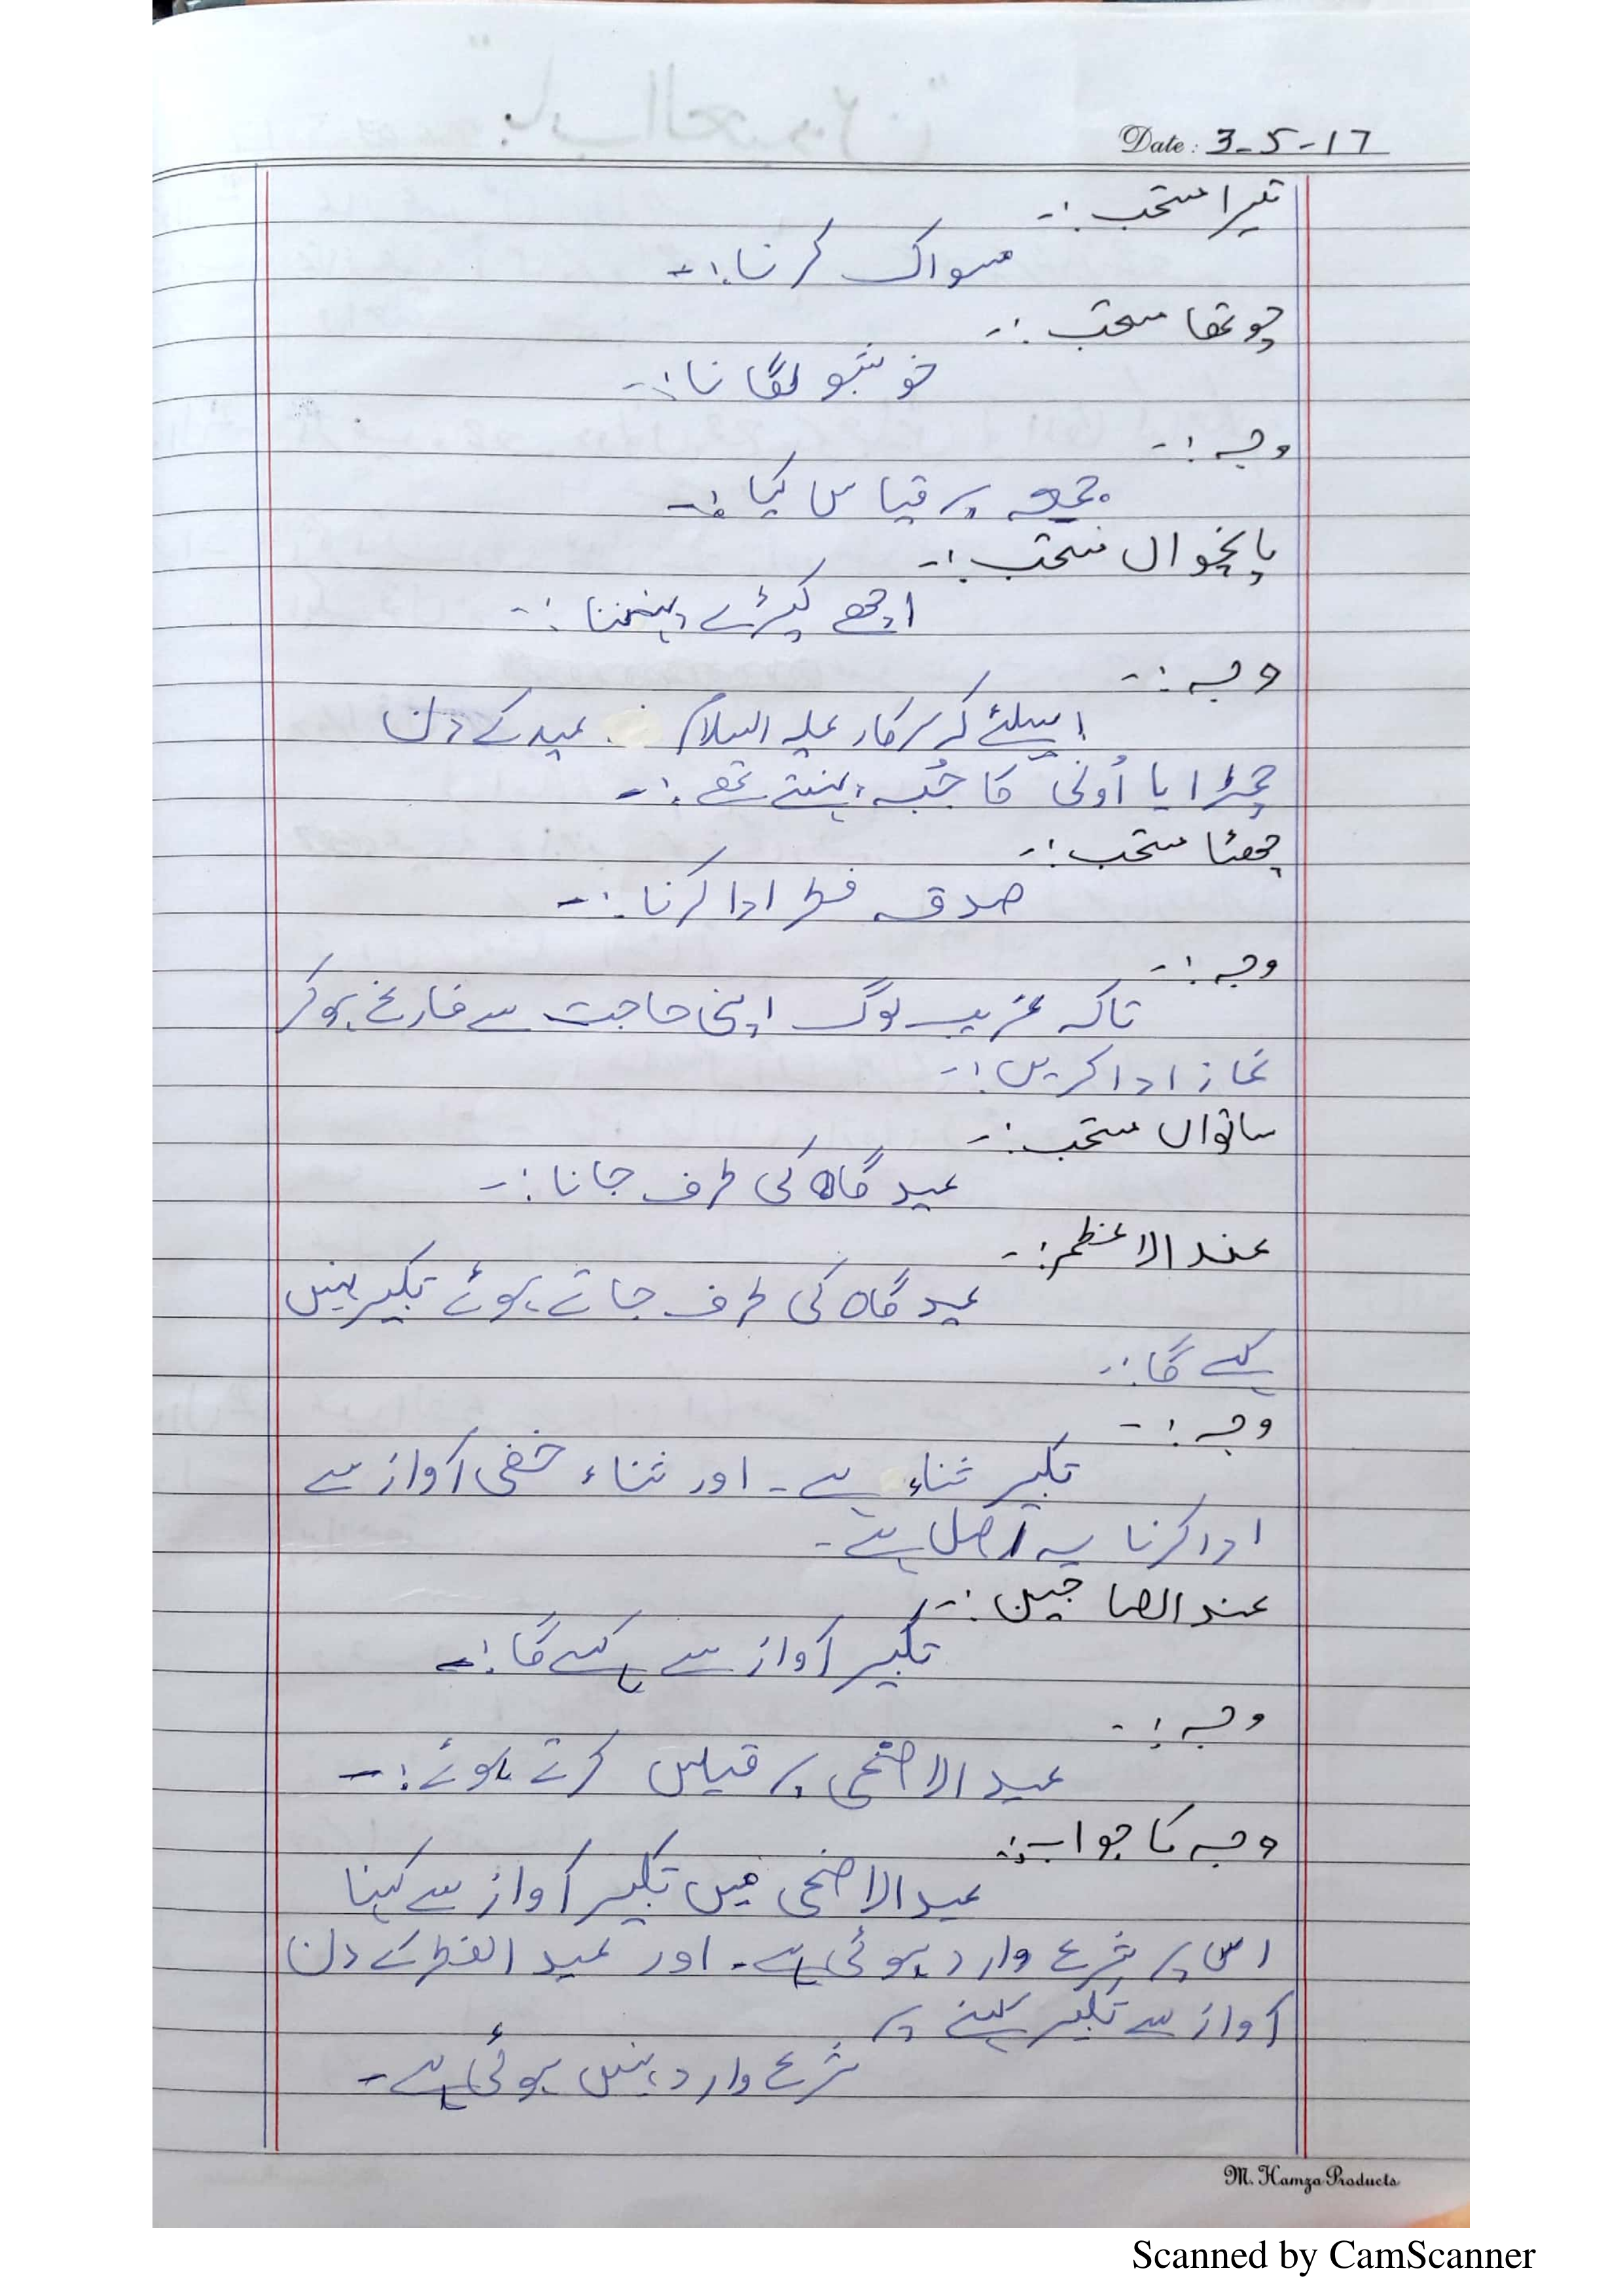 Date: 3-5-17
تیسرا مستحب :-
مسواک کرنا :-
چوتھا مستحب :-
خوشبو لگانا :-
وجہ :-
جمعہ پر قیاس کیا :-
پانچواں مستحب :-
اچھے کپڑے پہننا :-
وجہ :-
اسلئے کہ سرکار علیہ السلام عید کے دن
چمڑا یا اُونی کا جُبہ پہنتے تھے :-
چھٹا مستحب :-
صدقہ فطر ادا کرنا :-
وجہ :-
تاکہ غریب لوگ اپنی حاجت سے فارغ ہوکر
نماز ادا کریں :-
ساتواں مستحب :-
عید گاہ کی طرف جانا :-
عند الاعظم :-
عید گاہ کی طرف جاتے ہوئے تکبیر نہیں
کہے گا :-
وجہ :-
تکبیر ثناء ہے۔ اور ثناء خفی آواز سے
ادا کرنا یہ اصل ہے۔
عند الصاحبین :-
تکبیر آواز سے کہے گا :-
وجہ :-
عید الاضحی پر قیاس کرتے ہوئے :-
وجہ کا جواب :-
عید الاضحی میں تکبیر آواز سے کہنا
اس پر شرع وارد ہوئی ہے۔ اور عید الفطر کے دن
آواز سے تکبیر کہنے پر
شرع وارد نہیں ہوئی ہے۔
M. Hamza Products
Scanned by CamScanner